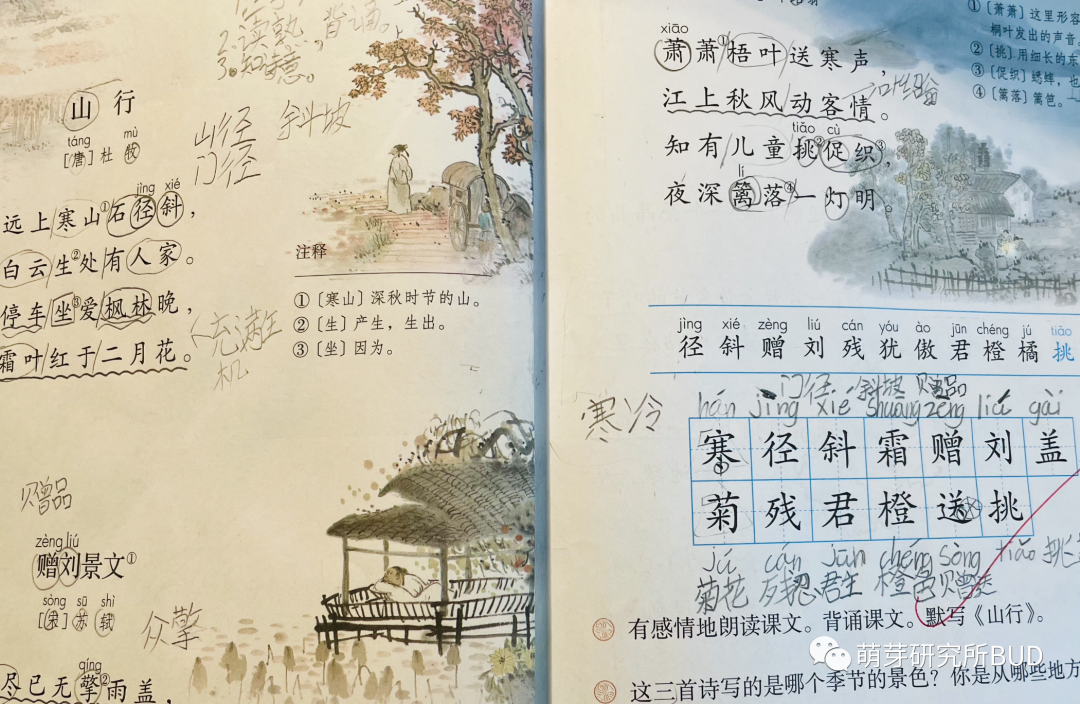 2.读熟,背诵。
3.知意。
山行
táng mù
[唐]杜牧
山径 斜坡
门径
jìng xié
远上寒山①石径斜,
白云生②处有人家。
停车坐③爱枫林晚,
霜叶红于二月花。
充满生
机
注释
①〔寒山〕深秋时节的山。
②〔生〕产生,生出。
③〔坐〕因为。
赠品
zèng liú
赠刘景文①
sòng sū shì
[宋]苏轼
众擎
qíng
尽已无擎②雨盖,
xiāo
萧萧①梧叶送寒声,
江上秋风动客情。
tiǎo cù
知有儿童挑②促织③,
lí
夜深篱落④一灯明。
①〔萧萧〕这里形容
桐叶发出的声音。
②〔挑〕用细长的东
③〔促织〕蟋蟀,也
④〔篱落〕篱笆。
jìng xié zèng liú cán yóu ào jūn chéng jú tiǎo
径 斜 赠 刘 残 犹 傲 君 橙 橘 挑
门径 斜坡 赠品
寒冷
hán jìng xié shuāng zèng liú gài
寒 径 斜 霜 赠 刘 盖
菊 残 君 橙 送 挑
jú cán jūn chéng sòng tiǎo
菊花 残忍 君主 橙色 赠送
有感情地朗读课文。背诵课文。默写《山行》。
这三首诗写的是哪个季节的景色?你是从哪些地方
萌芽研究所BUD